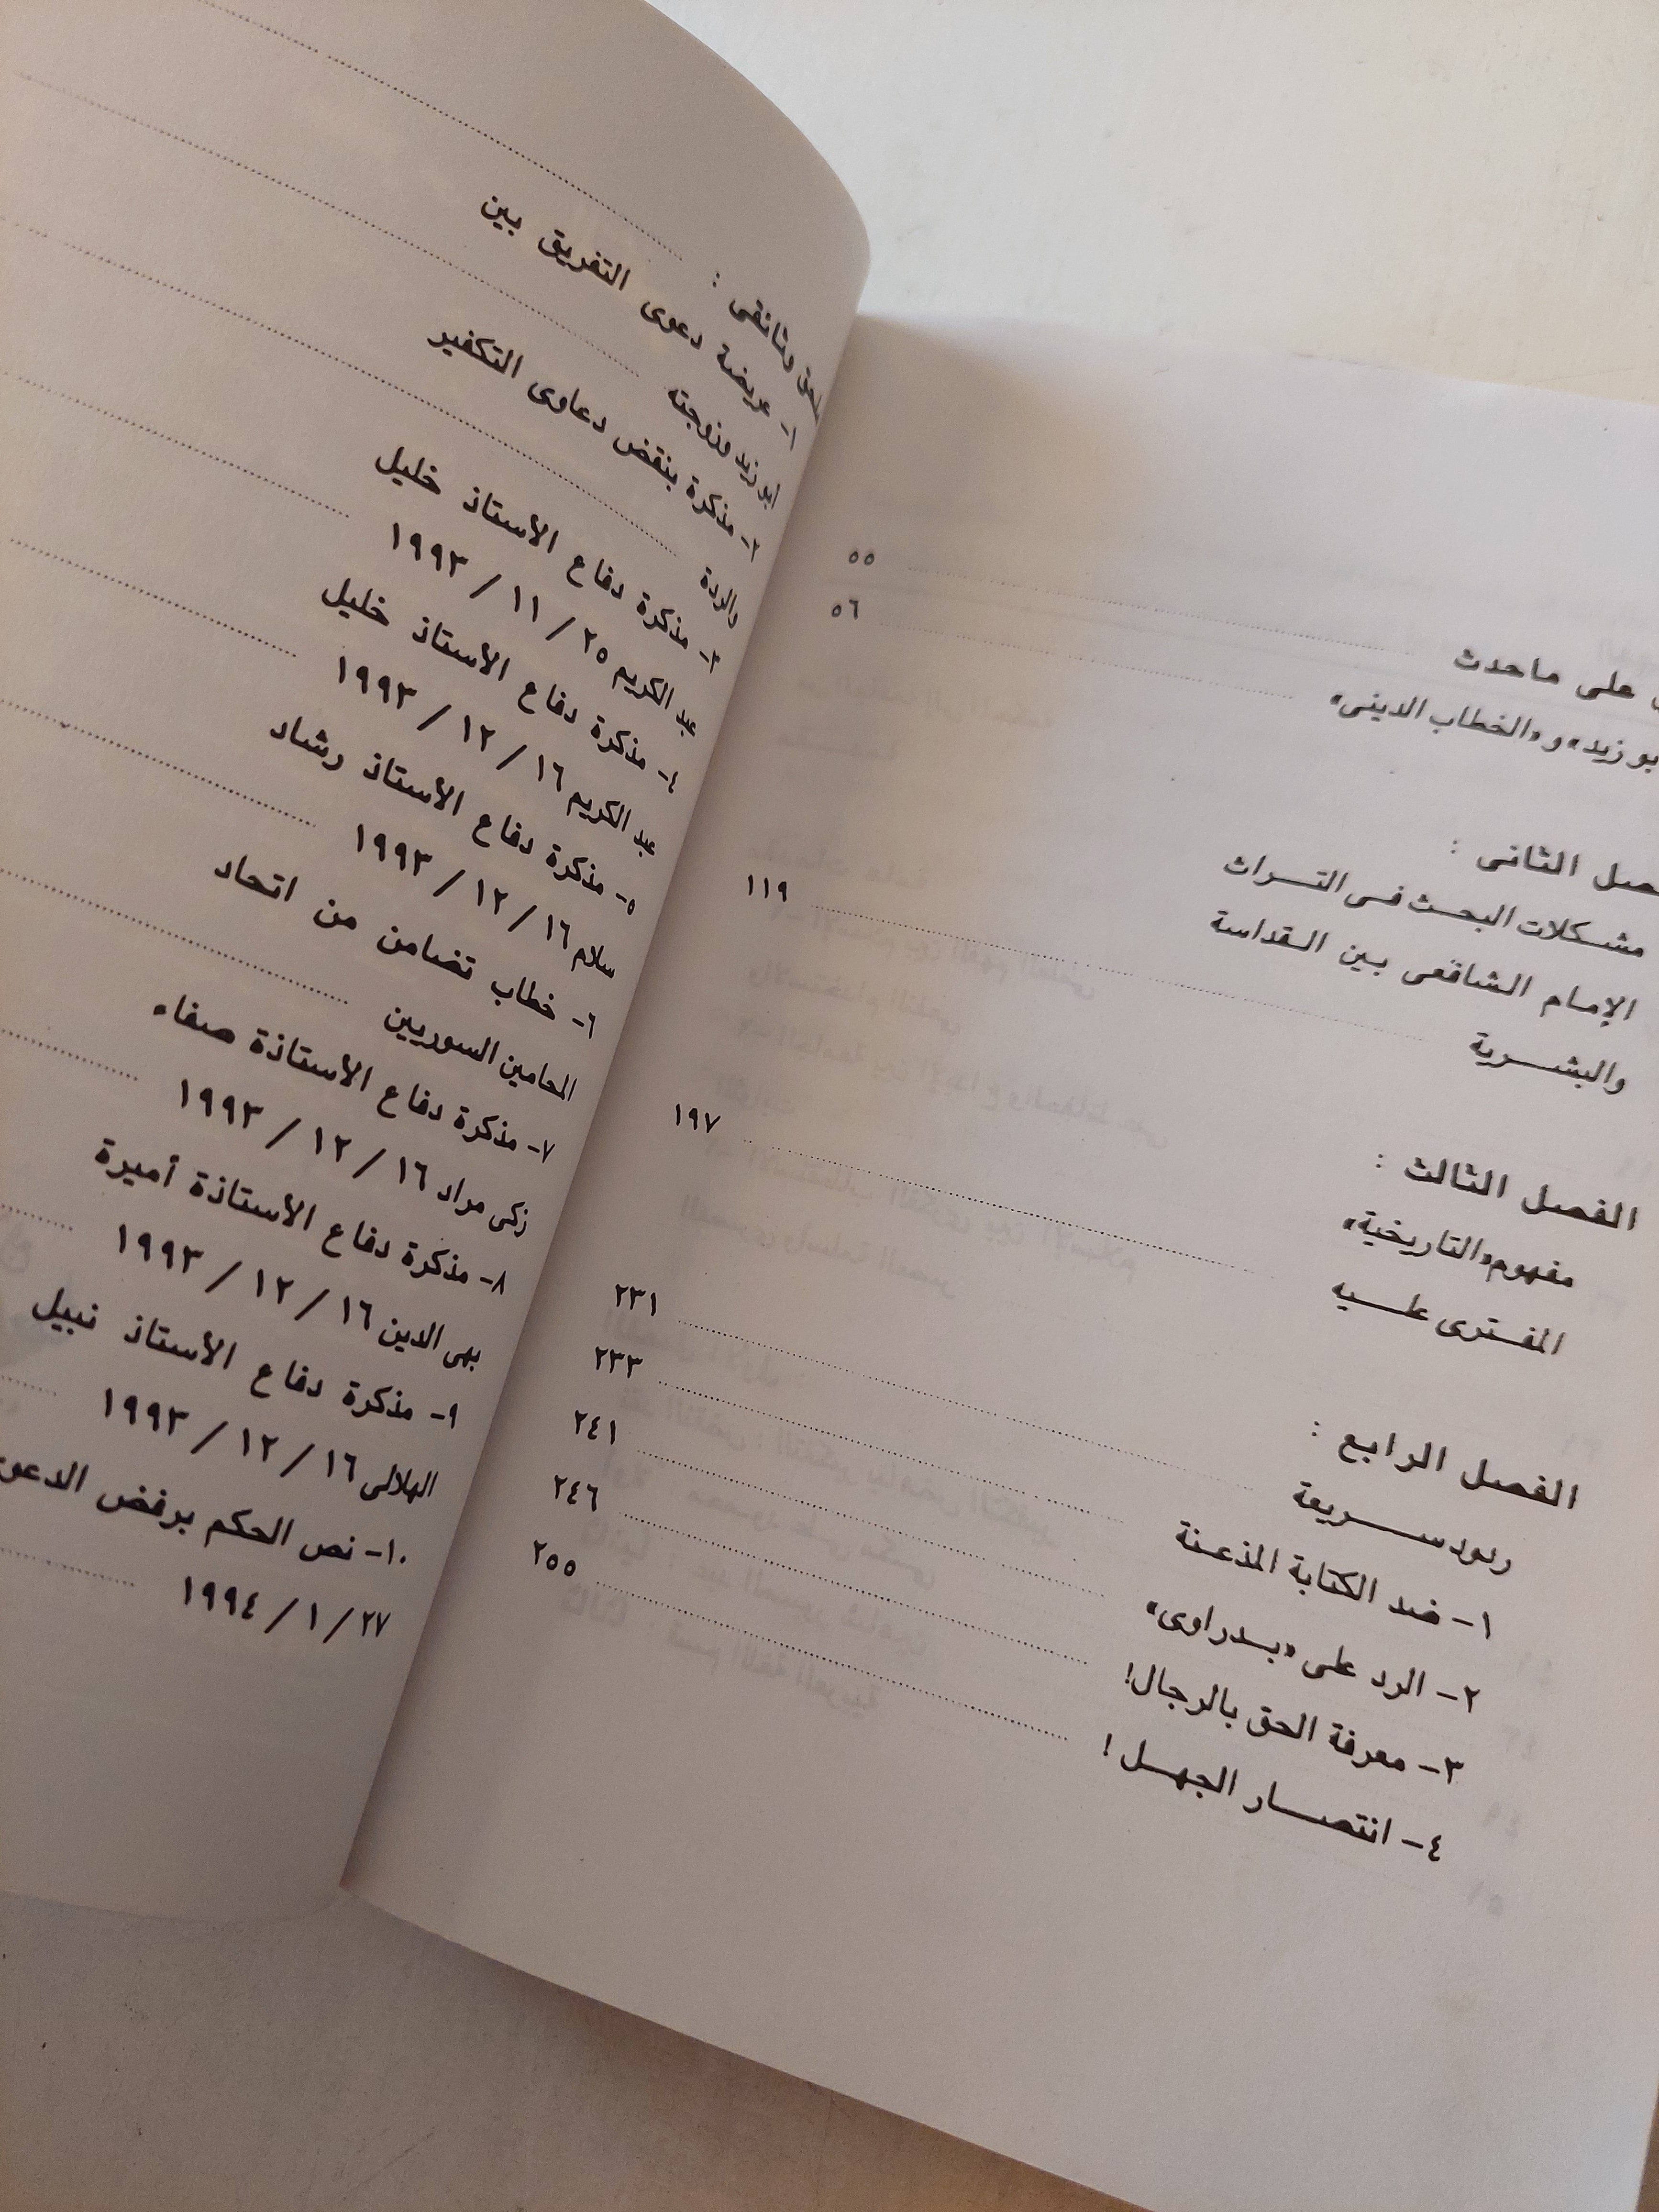 على ماحدث
٥٥
بو زيد» و «الخطاب الدينى»
٥٦
الثانى :
مشكلات البحث فى التراث
١١٩
الإمام الشافعى بين القداسة
والبشرية
الفصل الثالث :
١٩٧
مفهوم «التاريخية»
المفترى عليه
الفصل الرابع :
ردود سريعة
٢٣١
١- ضد الكتابة المذعنة
٢٣٣
٢- الرد على «بدراوى»
٢٤١
٣- معرفة الحق بالرجال!
٢٤٦
٤- انتصار الجهل !
٢٥٥
وثائقى :
١- عريضة دعوى التفريق بين
أبو زيد وزوجته
٢- مذكرة بنقض دعاوى التكفير
والردة
٣- مذكرة دفاع الأستاذ خليل
عبد الكريم ٢٥ / ١١ / ١٩٩٣
٤- مذكرة دفاع الأستاذ خليل
عبد الكريم ١٦ / ١٢ / ١٩٩٣
٥- مذكرة دفاع الأستاذ رشاد
سلام ١٦ / ١٢ / ١٩٩٣
٦- خطاب تضامن من اتحاد
المحامين السوريين
٧- مذكرة دفاع الأستاذة صفاء
زكى مراد ١٦ / ١٢ / ١٩٩٣
٨- مذكرة دفاع الأستاذة أميرة
بهى الدين ١٦ / ١٢ / ١٩٩٣
٩- مذكرة دفاع الأستاذ نبيل
الهلالى ١٦ / ١٢ / ١٩٩٣
١٠- نص الحكم برفض الدعو
٢٧ / ١ / ١٩٩٤